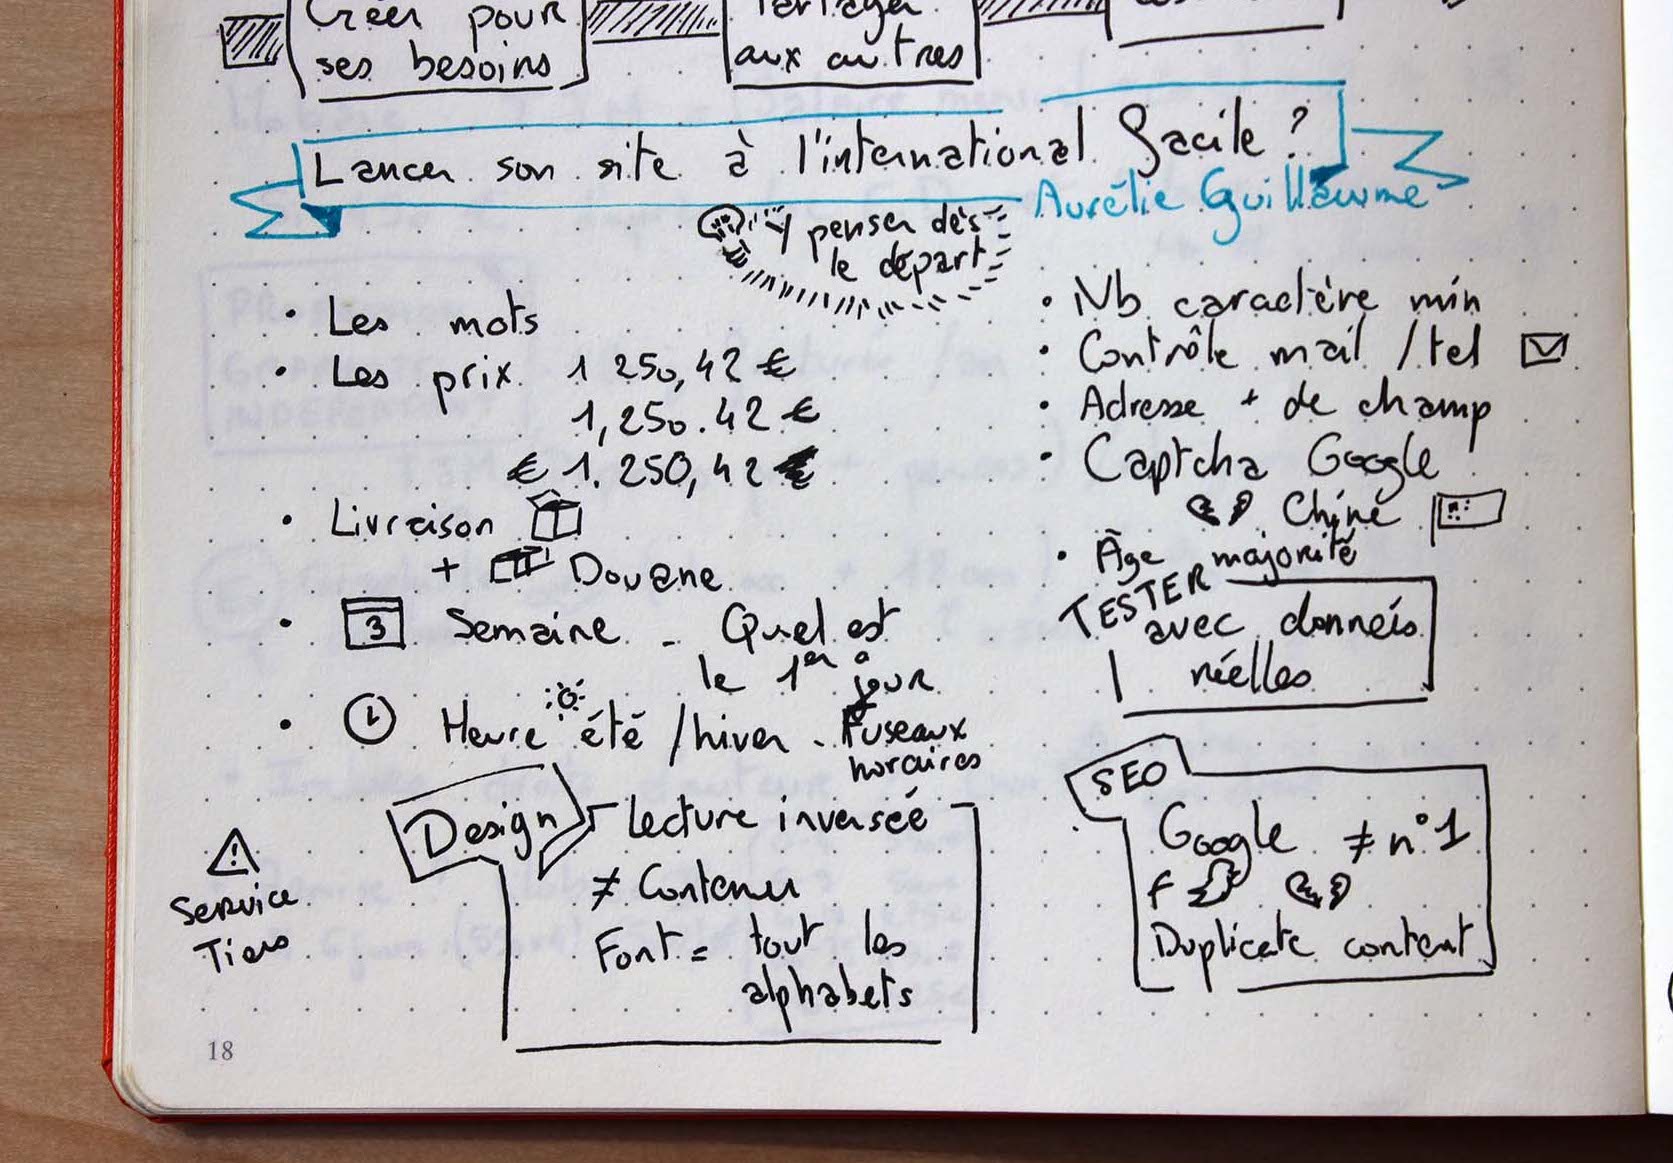 Créer pour
ses besoins
Partager
aux autres
Lancer son site à l'international facile ?
Aurélie Guillaume
Y penser dès
le départ
• Les mots
• Les prix 1 250,42 €
1,250.42 €
€ 1.250,42
• Livraison
+ Douane
• 3 Semaine - Quel est
le 1er jour
• Heure été / hiver - Fuseaux
horaires
• Nb caractère min
• Contrôle mail / tel
• Adresse + de champ
• Captcha Google
Chine
• Âge majorité
TESTER
avec données
réelles
Design
lecture inversée
≠ Contenu
Font = tout les
alphabets
! Service
Tiers
SEO
Google ≠ n°1
f
Duplicate content
18